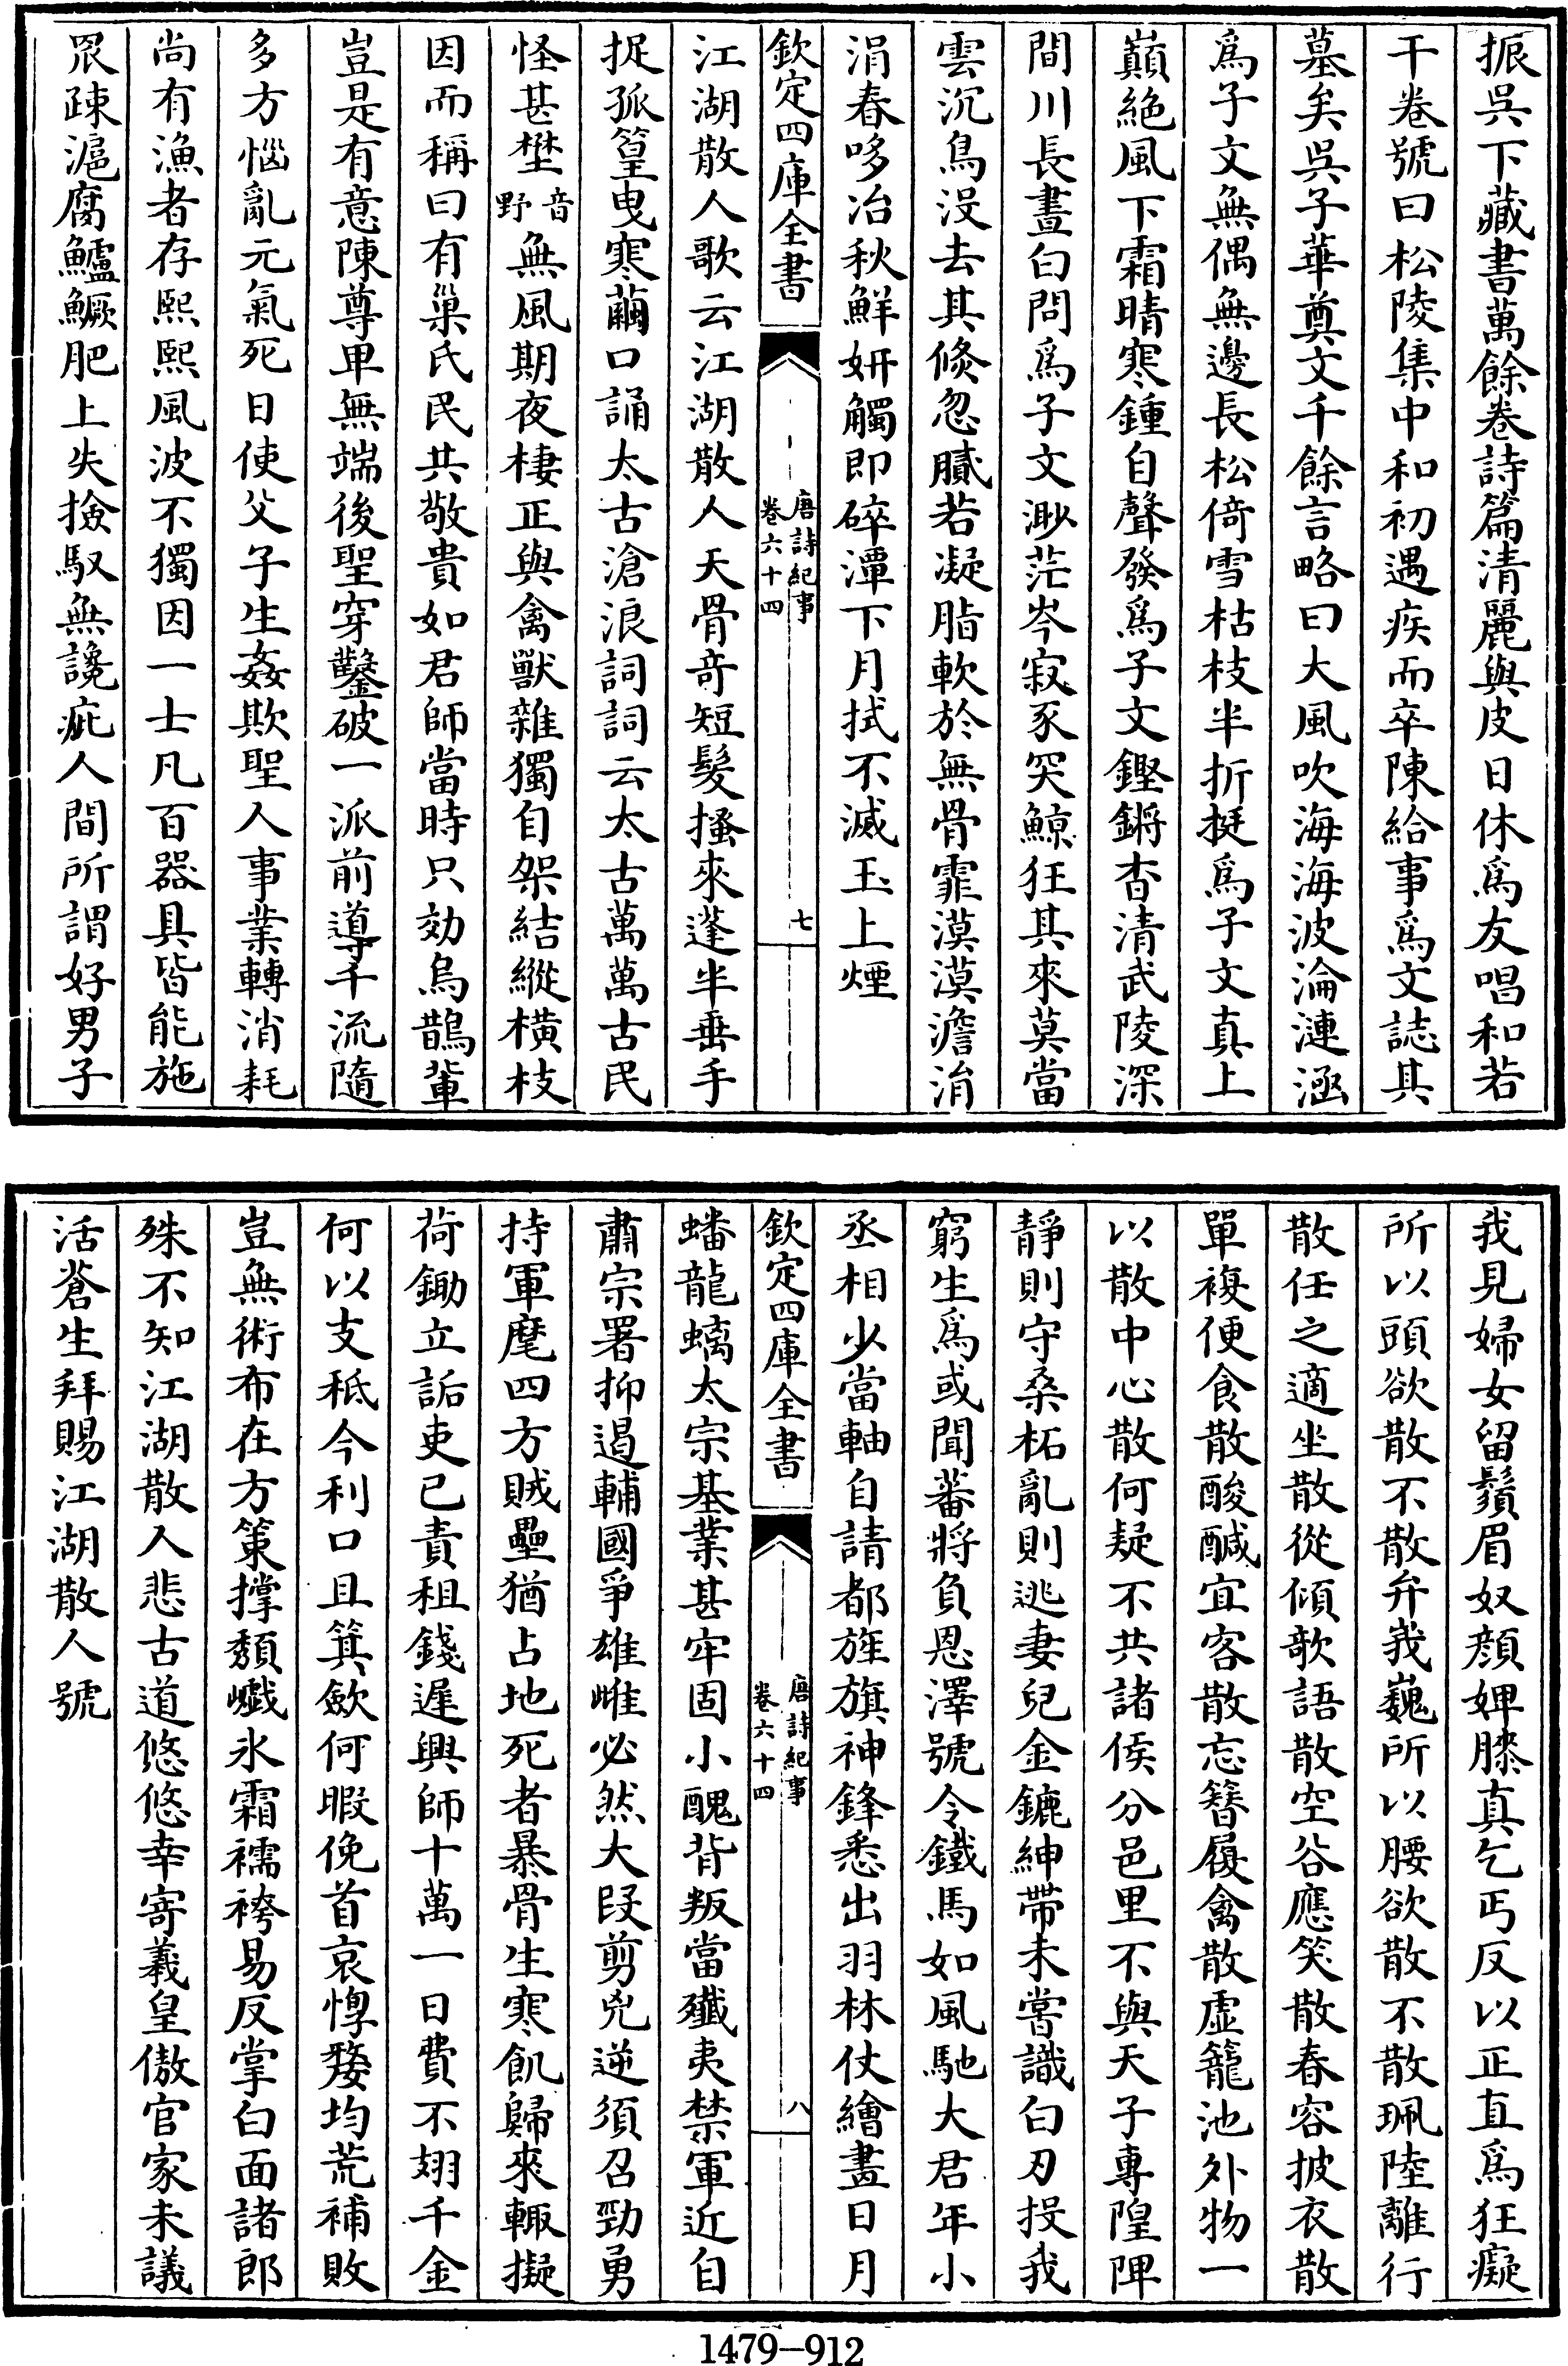 振呉下藏書萬餘卷詩篇清麗與皮日休爲友唱和若
干卷號曰松陵集中和初遇疾而卒陳給事爲文誌其
墓矣呉子華奠文千餘言略曰大風吹海海波淪漣涵
爲子文無偶無邊長松倚雪枯枝半折挺爲子文真上
巔絶風下霜晴寒鍾自聲發爲子文鏗鏘杳清武陵深
間川長晝白問爲子文渺茫岑寂豕突鯨狂其來莫當
雲沉鳥沒去其倏忽膩若凝脂軟於無骨霏漠漠澹涓
涓春哆冶秋鮮妍觸即碎潭下月拭不滅玉上煙
欽定四庫全書
唐詩紀事
卷六十四
七
江湖散人歌云江湖散人天骨奇短髮搔來蓬半垂手
捉孤篁曳寒繭口誦太古滄浪詞詞云太古萬萬古民
怪甚埜音野無風期夜棲正與禽獸雜獨自架結縱橫枝
因而稱曰有巢氏民共敬貴如君師當時只効烏鵲輩
豈是有意陳尊卑無端後聖穿鑿破一派前導千流隨
多方惱亂元氣死日使父子生姦欺聖人事業轉消耗
尚有漁者存熙熙風波不獨因一士凡百器具皆能施
罛疎滬腐鱸鱖肥上失撿馭無讒疵人間所謂好男子
我見婦女留鬚眉奴顔婢膝真乞丐反以正直爲狂癡
所以頭欲散不散弁峩巍所以腰欲散不散珮陸離行
散任之適坐散從傾欹語散空谷應笑散春容披衣散
單複便食散酸醎宜客散忘簪履禽散虛籠池外物一
以散中心散何疑不共諸侯分邑里不與天子專隍陴
靜則守桑柘亂則逃妻兒金鑣紳帶未嘗識白刃投我
窮生爲或聞蕃將負恩澤號令鐵馬如風馳大君年小
丞相少當軸自請都旌旗神鋒悉出羽林仗繪畫日月
欽定四庫全書
唐詩紀事
卷六十四
八
蟠龍螭太宗基業甚牢固小醜背叛當殲夷禁軍近自
肅宗署抑遏輔國爭雄雌必然大段剪兇逆須召勁勇
持軍麾四方賊壘猶占地死者暴骨生寒飢歸來輙擬
荷鋤立詬吏已責租錢遲興師十萬一日費不翅千金
何以支秪今利口且箕斂何暇俛首哀惸嫠均荒補敗
豈無術布在方策撑頽巇氷霜襦袴易反掌白面諸郎
殊不知江湖散人悲古道悠悠幸寄羲皇傲官家未議
活蒼生拜賜江湖散人號
1479-912